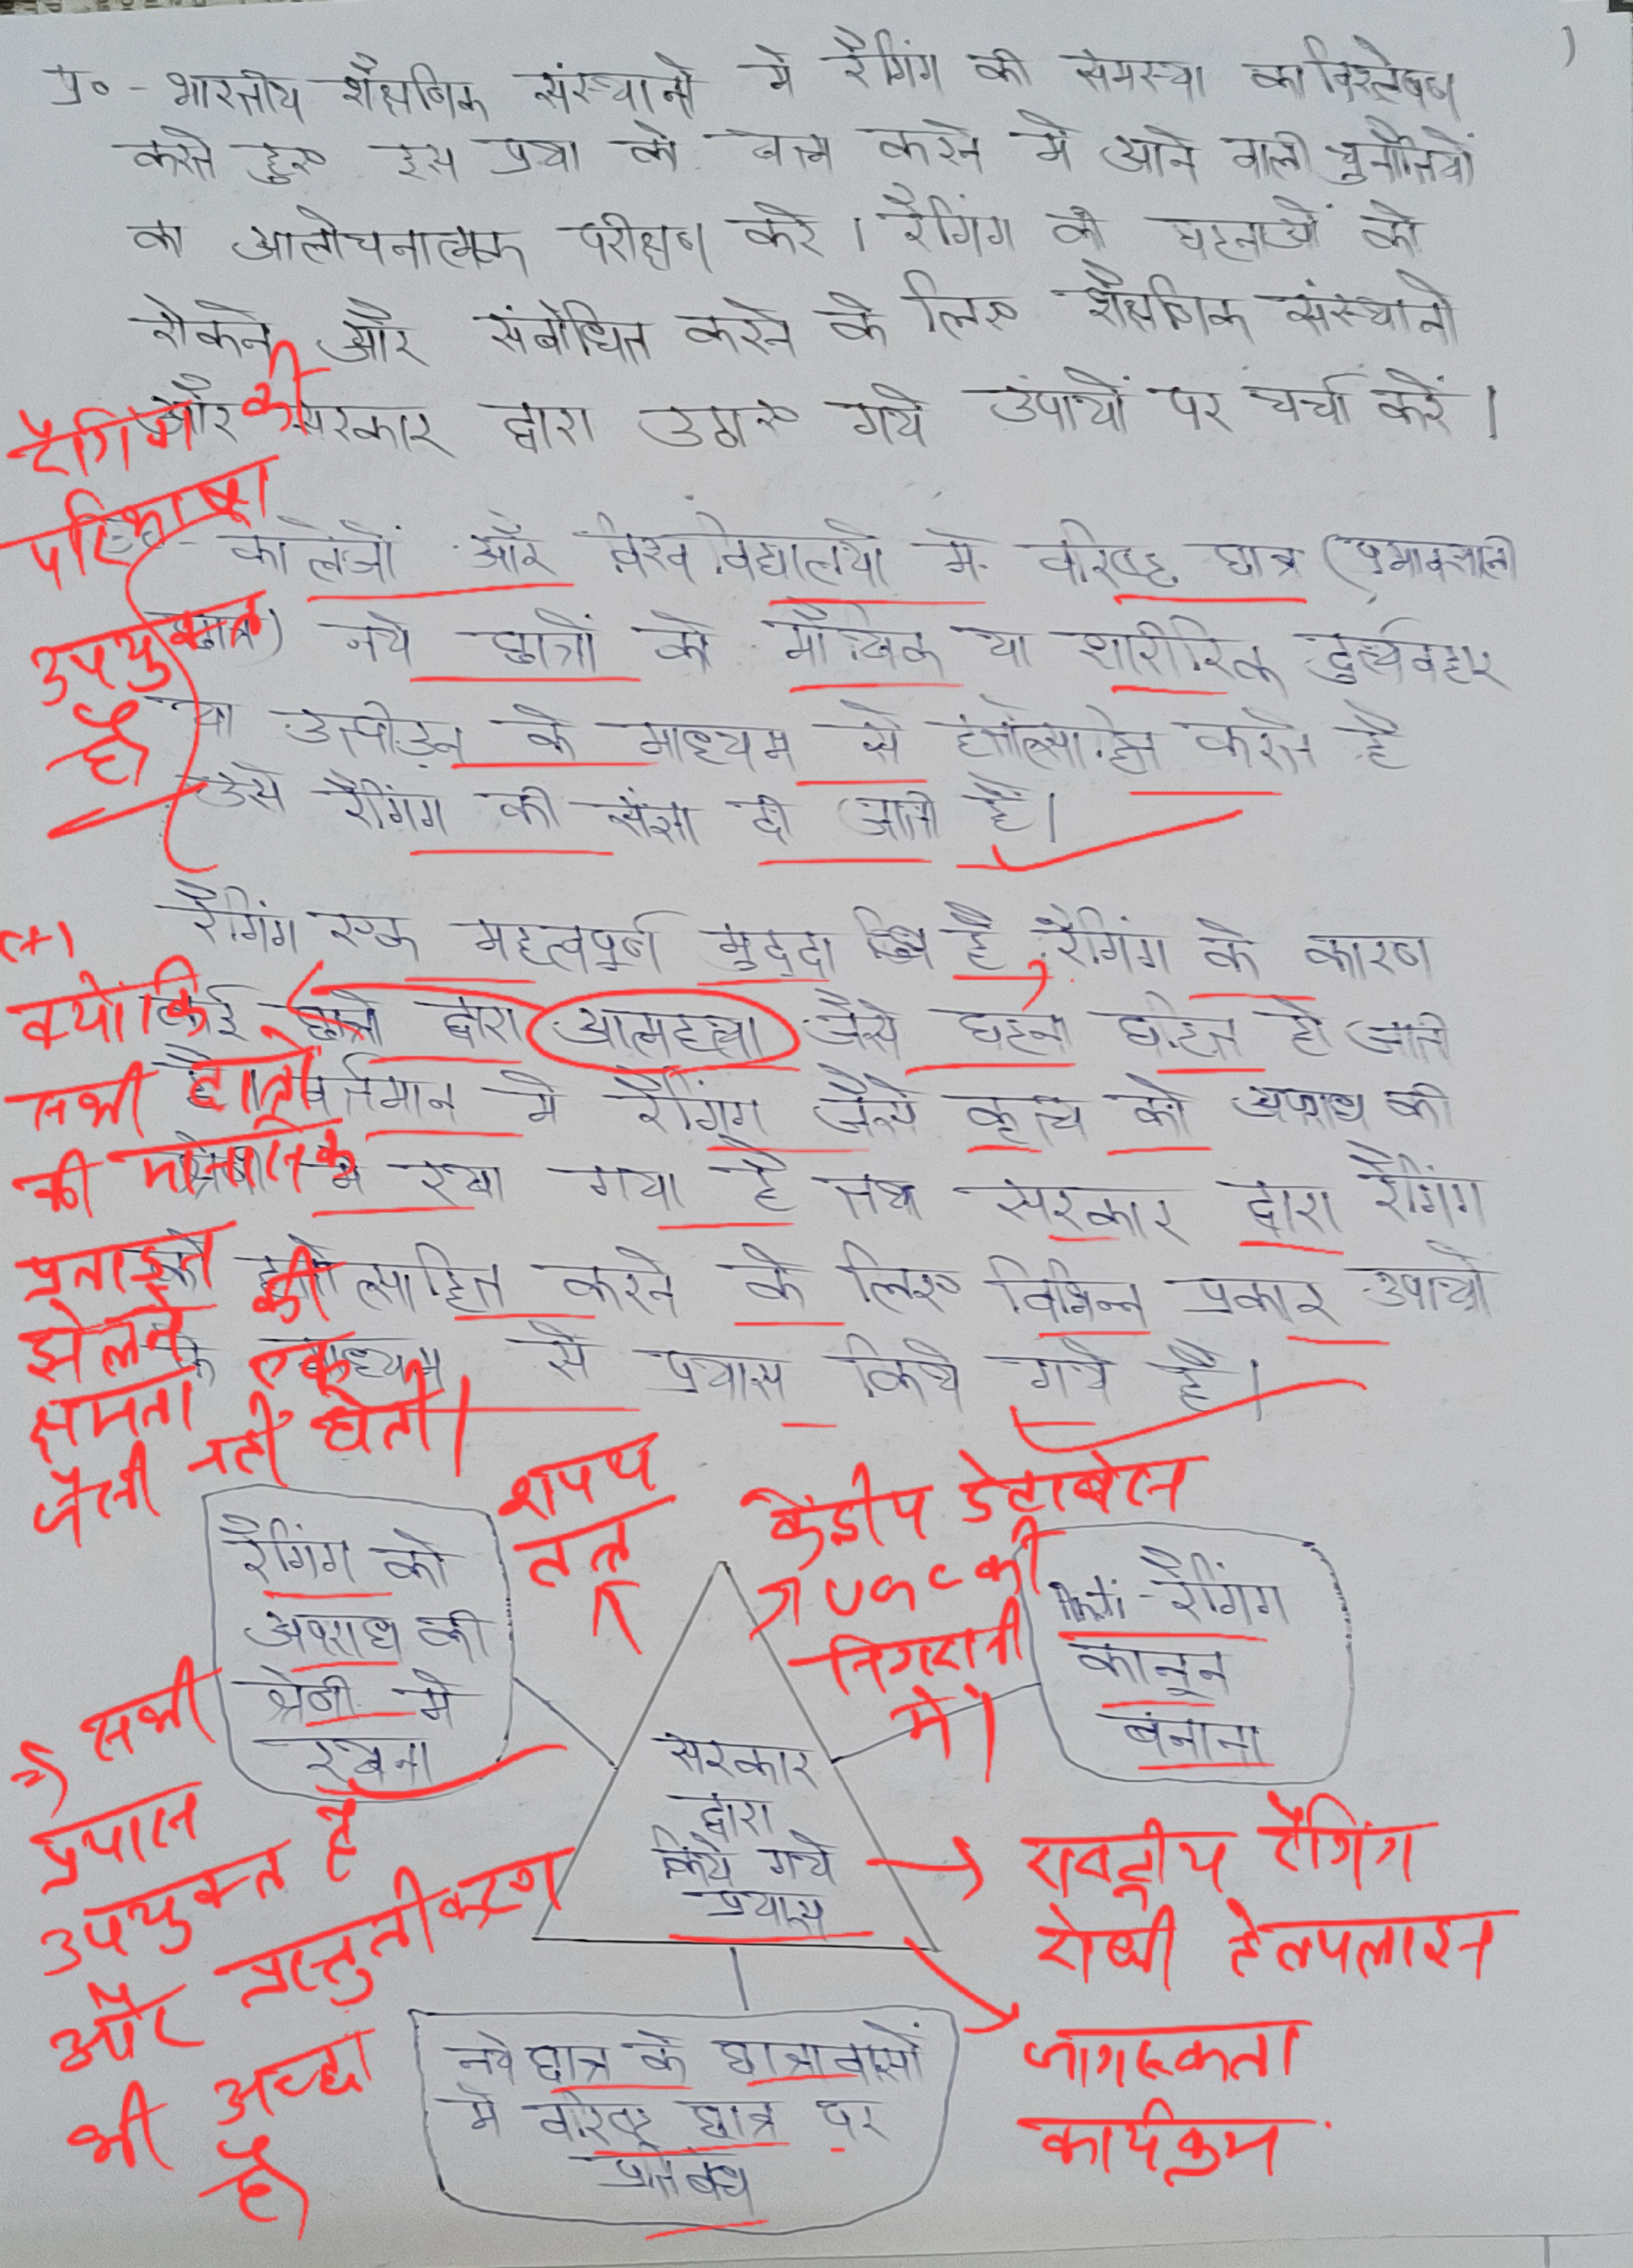 प्र० - भारतीय शैक्षणिक संस्थानों में रैगिंग की समस्या का विश्लेषण
करते हुए इस प्रथा को खत्म करने में आने वाली चुनौतियों
का आलोचनात्मक परीक्षण करें। रैगिंग की घटनाओं को
रोकने और संबोधित करने के लिए शैक्षणिक संस्थानों
और सरकार द्वारा उठाए गये उपायों पर चर्चा करें।
रैगिंग की
परिभाषा
उपयुक्त
है
कालेजों और विश्वविद्यालयों में वरिष्ठ छात्र (प्रभावशाली
छात्र) नये छात्रों को मौखिक या शारीरिक दुर्व्यवहार
या उत्पीड़न के माध्यम से हतोत्साहित करते है
उसे रैगिंग की संज्ञा दी जाती है।
रैगिंग एक महत्वपूर्ण मुद्दा है, रैगिंग के कारण
कई छात्रों द्वारा आत्महत्या जैसे घटना घटित हो जाती
है। वर्तमान में रैगिंग जैसे कृत्य को अपराध की
श्रेणी में रखा गया है तथा सरकार द्वारा रैगिंग
को हतोत्साहित करने के लिए विभिन्न प्रकार उपायों
के माध्यम से प्रयास किये गये है।
क्योंकि
सभी छात्रों
की मानसिक
प्रताड़ना
झेलने की
क्षमता एक
जैसी नहीं होती।
शपथ
पत्र
केंद्रीय डेटाबेस
UGC की
निगरानी
में।
रैगिंग को
अपराध की
श्रेणी में
रखना
Anti-रैगिंग
कानून
बनाना
सरकार
द्वारा
किये गये
प्रयास
सभी
प्रयास
उपयुक्त है
और प्रस्तुतीकरण
भी अच्छा
है
राष्ट्रीय रैगिंग
रोधी हेल्पलाइन
जागरूकता
कार्यक्रम
नये छात्र के छात्रावासों
में वरिष्ठ छात्र पर
प्रतिबंध